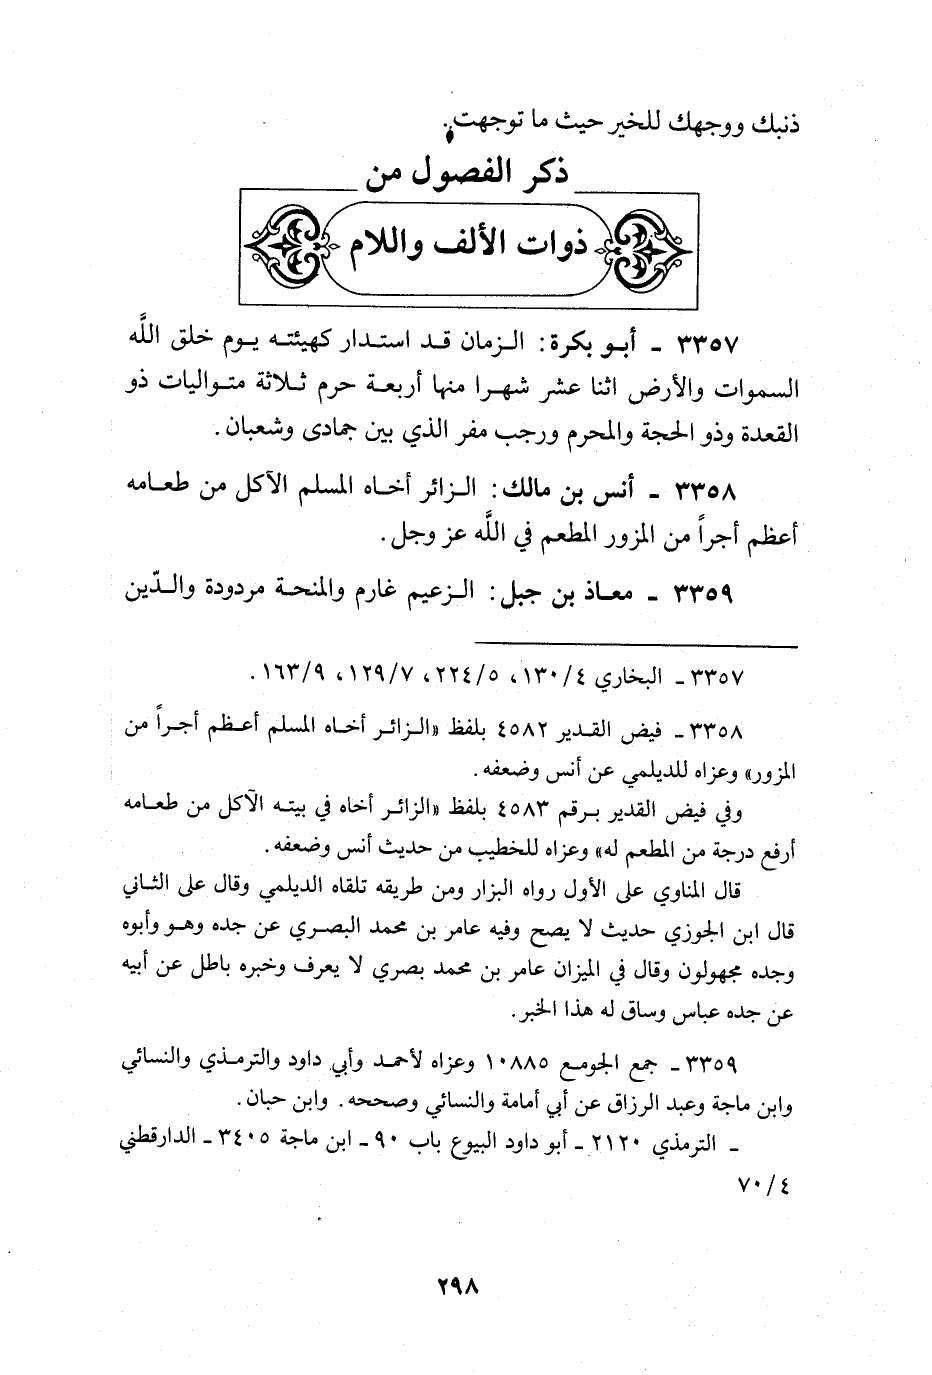 ذنبك ووجهك للخير حيث ما توجهت.
ذكر الفصول من
ذوات الألف واللام
٣٣٥٧ ـ أبو بكرة: الزمان قد استدار كهيئته يوم خلق اللَّه
السموات والأرض اثنا عشر شهرا منها أربعة حرم ثلاثة متواليات ذو
القعدة وذو الحجة والمحرم ورجب مفر الذي بين جمادى وشعبان.
٣٣٥٨ ـ أنس بن مالك: الزائر أخاه المسلم الآكل من طعامه
أعظم أجراً من المزور المطعم في اللَّه عز وجل.
٣٣٥٩ ـ معاذ بن جبل: الزعيم غارم والمنحة مردودة والدّين
٣٣٥٧ ـ البخاري ١٣٠/٤، ٢٢٤/٥، ١٢٩/٧، ١٦٣/٩.
٣٣٥٨ ـ فيض القدير ٤٥٨٢ بلفظ «الزائر أخاه المسلم أعظم أجراً من
المزور» وعزاه للديلمي عن أنس وضعفه.
وفي فيض القدير برقم ٤٥٨٣ بلفظ «الزائر أخاه في بيته الآكل من طعامه
أرفع درجة من المطعم له» وعزاه للخطيب من حديث أنس وضعفه.
قال المناوي على الأول رواه البزار ومن طريقه تلقاه الديلمي وقال على الثاني
قال ابن الجوزي حديث لا يصح وفيه عامر بن محمد البصري عن جده وهو وأبوه
وجده مجهولون وقال في الميزان عامر بن محمد بصري لا يعرف وخبره باطل عن أبيه
عن جده عباس وساق له هذا الخبر.
٣٣٥٩ ـ جمع الجومع ١٠٨٨٥ وعزاه لأحمد وأبي داود والترمذي والنسائي
وابن ماجة وعبد الرزاق عن أبي أمامة والنسائي وصححه. وابن حبان.
ـ الترمذي ٢١٢٠ ـ أبو داود البيوع باب ٩٠ ـ ابن ماجة ٣٤٠٥ ـ الدارقطني
٧٠/٤
٢٩٨